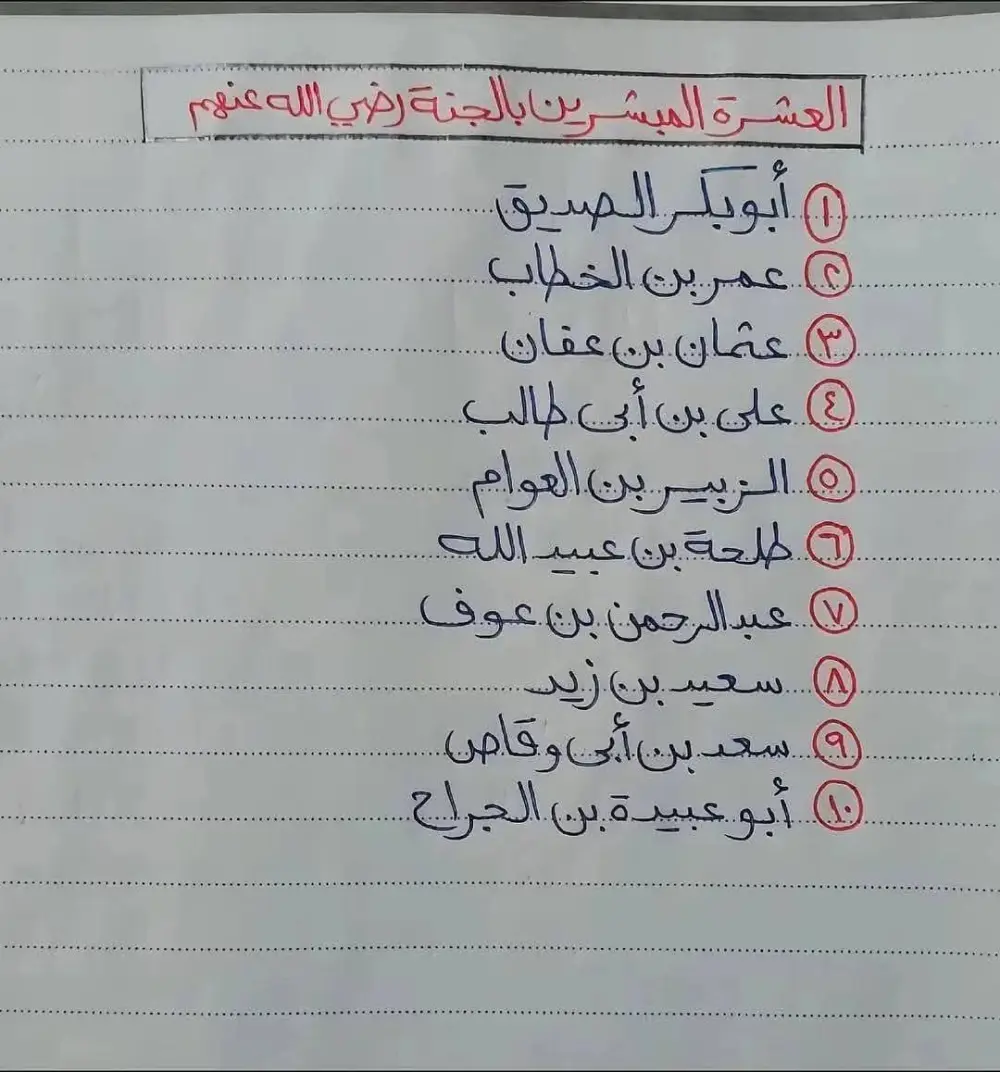 العشرة المبشرين بالجنة رضي الله عنهم
١ أبو بكر الصديق
٢ عمر بن الخطاب
٣ عثمان بن عفان
٤ على بن أبى طالب
٥ الزبير بن العوام
٦ طلحة بن عبيد الله
٧ عبد الرحمن بن عوف
٨ سعيد بن زيد
٩ سعد بن أبى وقاص
١٠ أبو عبيدة بن الجراح